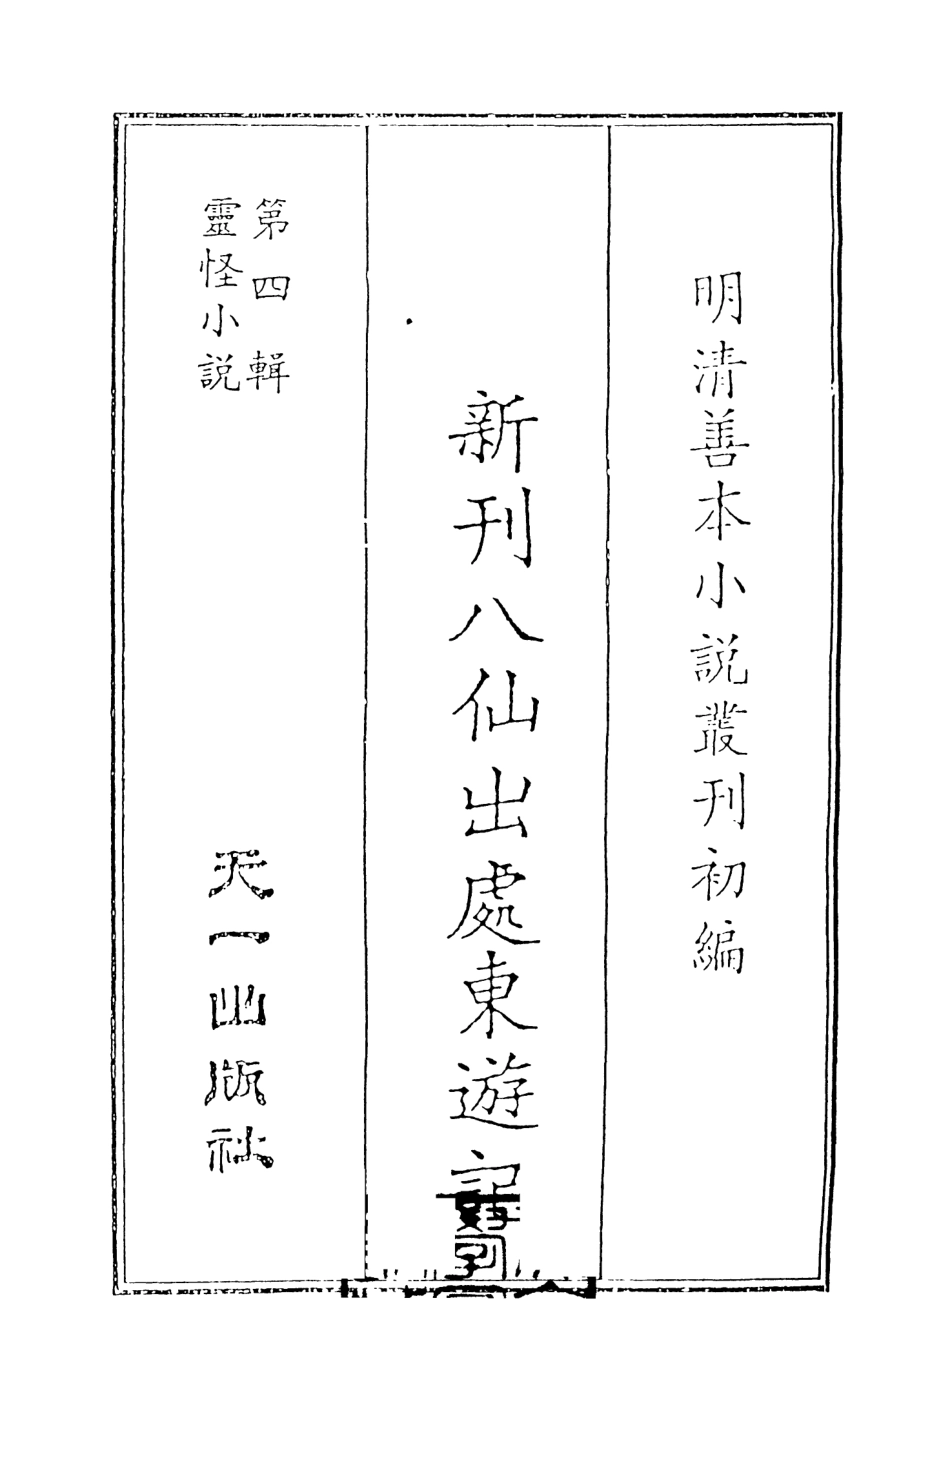 明清善本小説叢刊初編
新刊八仙出處東遊記
第四輯
靈怪小説
天一出版社